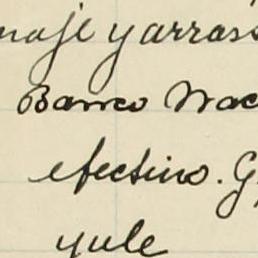 naje y arras
Banco Nac
efectivo. G
yule